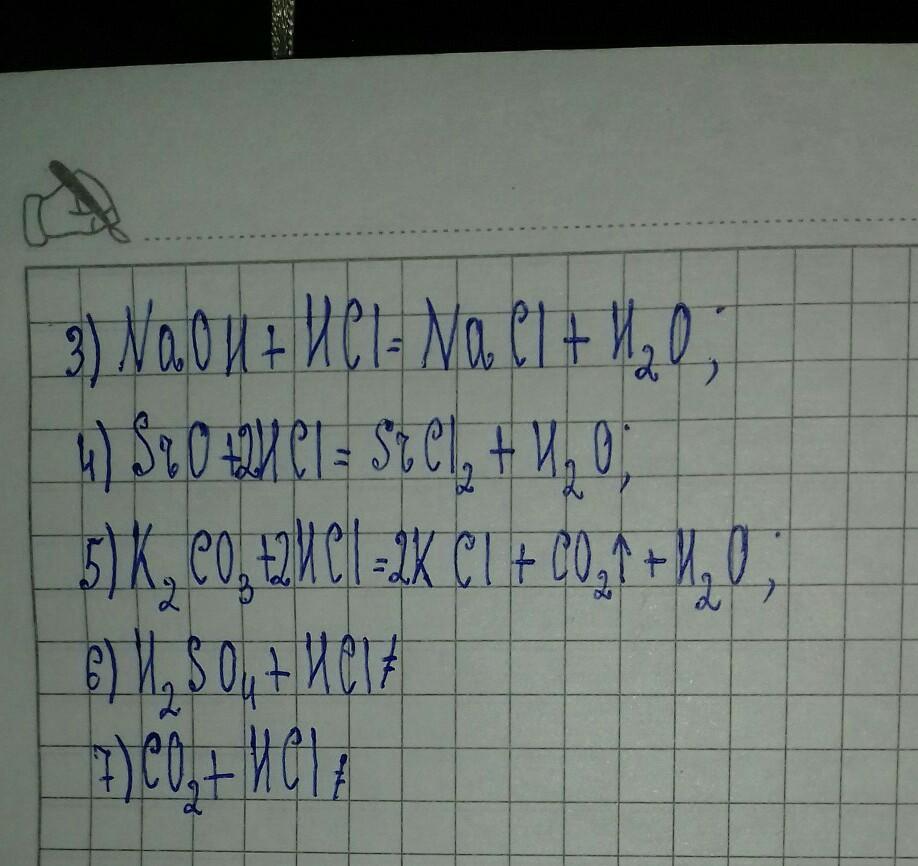 3) NaOH + HCl = NaCl + H₂O;
4) SrO + 2HCl = SrCl₂ + H₂O;
5) K₂CO₃ + 2HCl = 2KCl + CO₂↑ + H₂O;
6) H₂SO₄ + HCl ≠
7) CO₂ + HCl ≠